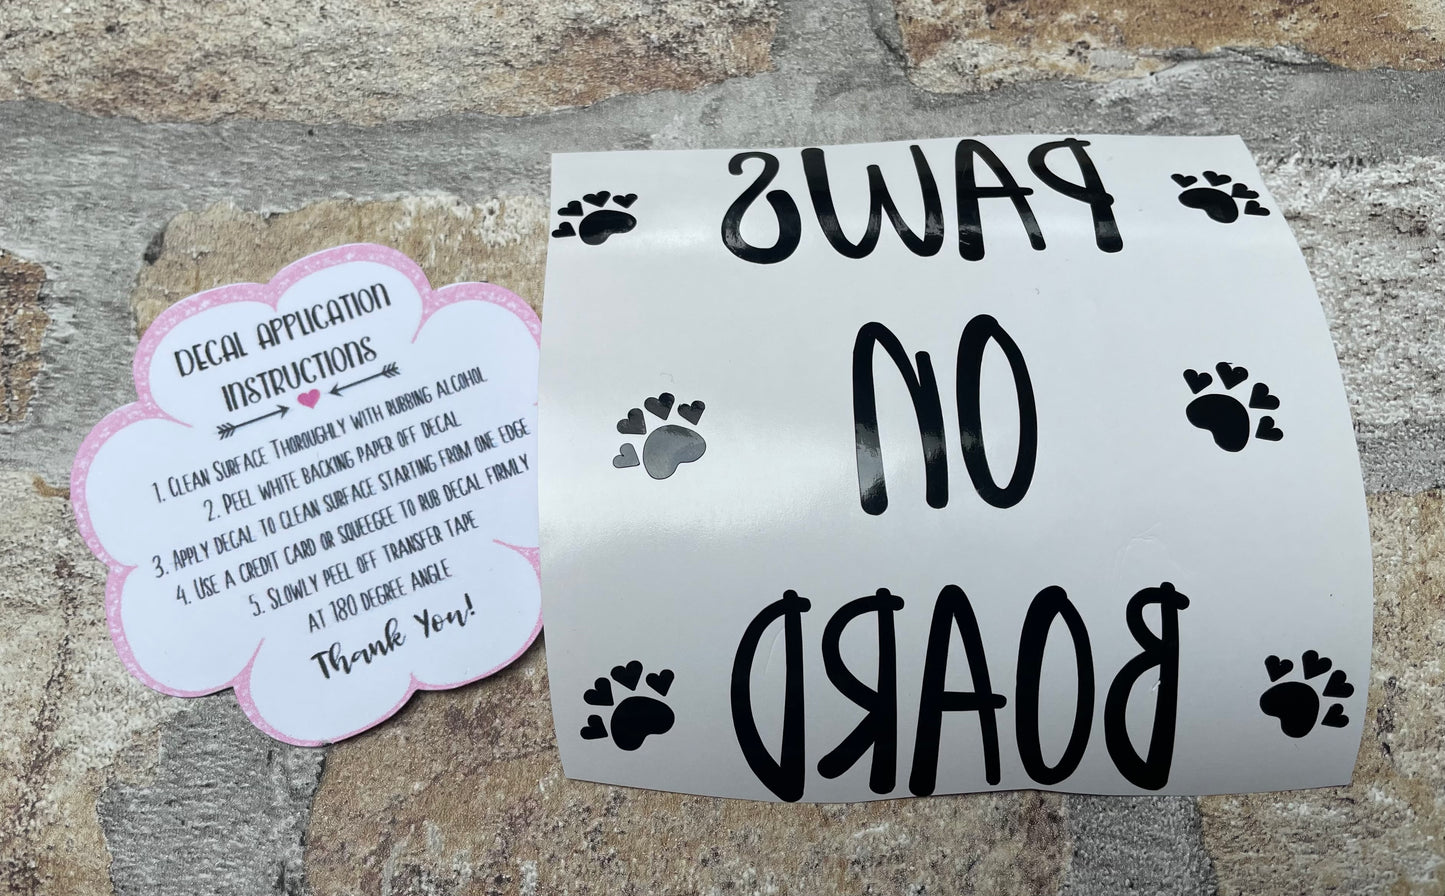 DECAL APPLICATION
INSTRUCTIONS
1. CLEAN SURFACE THOROUGHLY WITH RUBBING ALCOHOL
2. PEEL WHITE BACKING PAPER OFF DECAL
3. APPLY DECAL TO CLEAN SURFACE STARTING FROM ONE EDGE
4. USE A CREDIT CARD OR SQUEEGEE TO RUB DECAL FIRMLY
5. SLOWLY PEEL OFF TRANSFER TAPE
AT 180 DEGREE ANGLE
Thank You!
PAWS
ON
BOARD